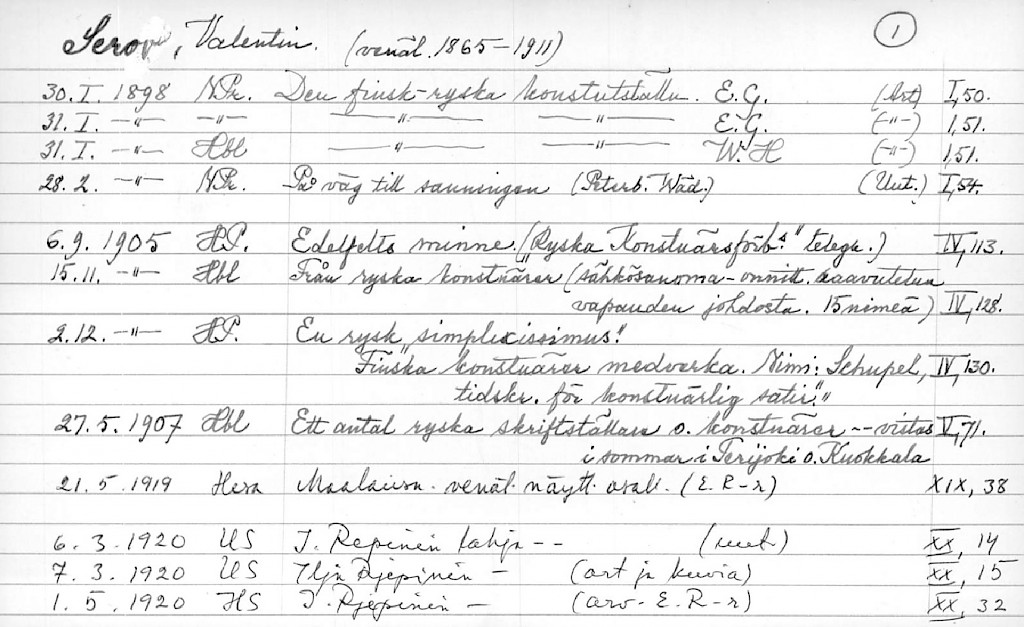 Serov, Valentin. (venäl. 1865–1911) 1
30. I. 1898 N.Pr. Den finsk-ryska konstutställn. E.G. (Art) I, 50.
31. I. –"– –"– –"– –"– E.G. (–"–) I, 51.
31. I. –"– Hbl –"– –"– W.H (–"–) I, 51.
28. 2. –"– N.Pr. På väg till sanningen (Peterb. Wäd.) (Uut.) I, 54.
6. 9. 1905 H.P. Edelfelts minne. („Ryska Konstnärsförb:s" telegr.) IV, 113.
15. 11. –"– Hbl Från ryska konstnärer (sähkösanoma-onnitt. saavutetun
vapauden johdosta. 15 nimeä) IV, 128.
2. 12. –"– H.P. En rysk „simplicissimus".
Finska konstnärer medverka. Nimi: Schupel, IV, 130.
tidskr. för konstnärlig satir."
27. 5. 1907 Hbl Ett antal ryska skriftställare o. konstnärer -- vistas V, 71.
i sommar i Terijoki o. Kuokkala
21. 5. 1919 Hesa venäl. näytt. (E. R-r) XIX, 38
6. 3. 1920 US I. Repinin lahja -- (uut.) XX, 14
7. 3. 1920 US Ilja Rjepinin – (art ja kuvia) XX, 15
1. 5. 1920 HS I. Rjepinin – (arv. E. R-r) XX, 32